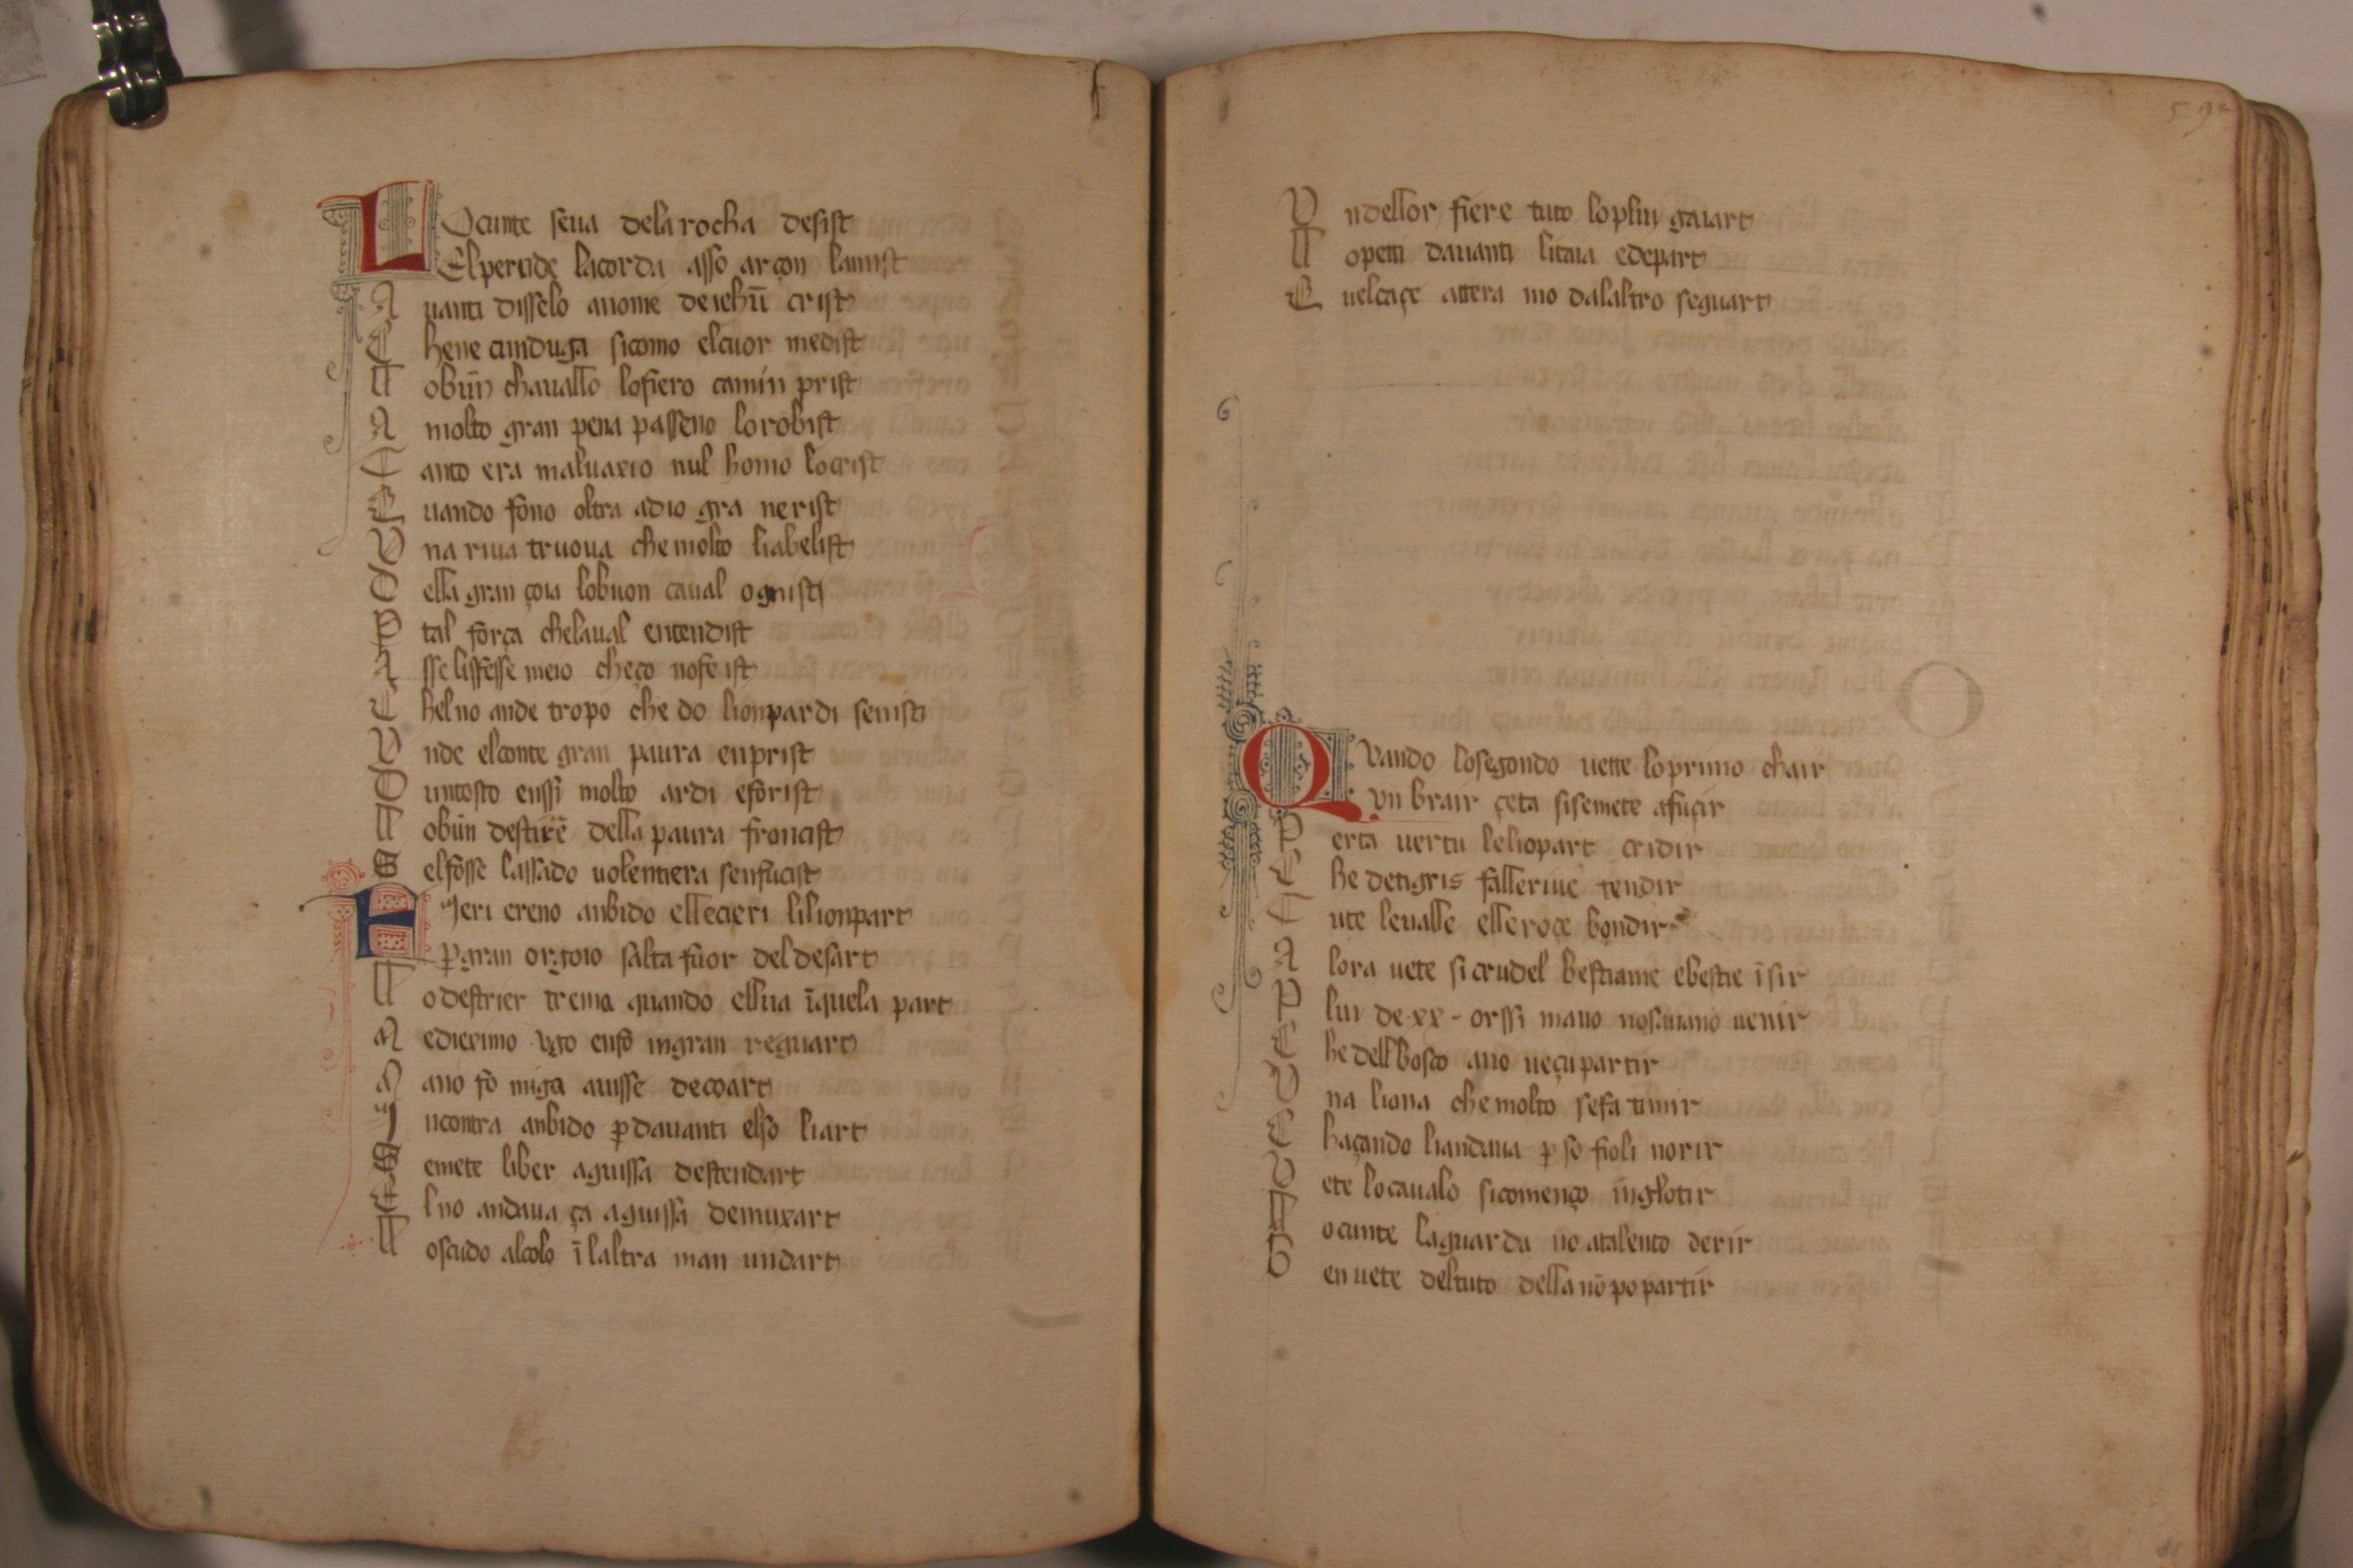 LO cunte seva dela rocha desist
El perende la corda asso arçon la mist
A vanti disselo a nome de iehū crist
C hene cunduga sicomo el cuor me dist
L o buin chavallo lo fiero camin prist
A molto gran pena passeno lo robist
T anto era malvaxio nul homo lo crist
E uando fono oltra a dio gra nerist
V na riva truova che molto li abelist
D ella gran çoia lo buon caval ognisti
P tal força che la val entendist
A sse li stesse meio che ço no feist
C hel no ande tropo che do lionpardi senisti
V nde el conte gran paura en prist
D un tosto enssi molto ardi e forist
L o buin destrirē della paura froncist
S el fosse lassado volentiera sen fucist
F Ieri ereno anbido ellecieri li lionpart
ꝑ gran orgoio salta fuor del desart
L o destrier trema quando ellva ī quela part
M edieximo vgo enfo in gran reguart
M a no fo miga a uisse de coart
I ncontra anbido ꝑ davanti elso liart
S emete liber a guissa destendart
E l no andava ça a guissa de muxart
L o scudo al colo ī laltra man un dart
59
V n dellor fiere tuto lo plui gaiart
L o peti davanti li taia e depart
E vel caçe a tera mo dal altro se guart
Q Vando lo segondo vette lo primo chair
Vn brair çeta si se mete a fuçir
P er ta vertu le liopart cridir
C he de tigris fall e rive tendir
T ute le valle elle roçe bondir
A lora vete si crudel bestiame e bestie īsir
P lui de xx · orssi mavo no scuiano venir
C he dell bosco ano veçu partir
V na liona che molto se fa timir
C haçando li andava ꝑ so fioli norir
V ete lo cavalo si començo inglotir
L o cunte la guarda no a talento de rir
B en vete del tuto della nō po partir